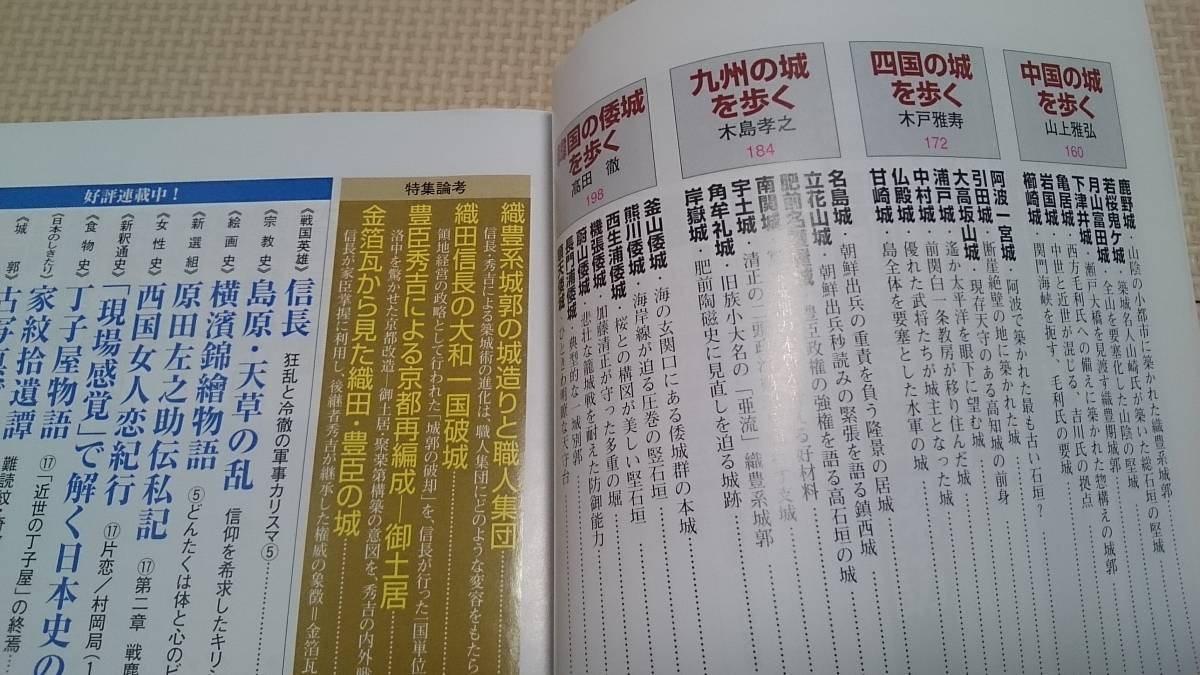 中国の城
を歩く
山上雅弘
160
鹿野城 山陰の小都市に築かれた織豊系城郭
若桜鬼ケ城 築城名人山崎氏が築いた総石垣の堅城
月山富田城 全山を要塞化した山陰の堅城
下津井城 瀬戸大橋を見渡す織豊期城郭
亀居城 西方毛利氏への備えに築かれた物構えの城郭
岩国城 中世と近世が混じる、吉川氏の拠点
櫛崎城 関門海峡を扼す、毛利氏の要城
四国の城
を歩く
木戸雅寿
172
阿波一宮城 阿波で築かれた最も古い石垣?
引田城 断星絶壁の地に築かれた城
大高坂山城 現存天守のある高知城の前身
浦戸城 遙か太平洋を眼下に望む城
中村城 前関白一条教房が移り住んだ城
仏殿城 優れた武将たちが城主となった城
甘崎城 島全体を要塞とした水軍の城
九州の城
を歩く
木島孝之
184
名島城 朝鮮出兵の重責を負う隆景の居城
立花山城 朝鮮出兵秒読みの緊張を語る高石垣の城
肥前名護屋城 豊臣政権の強権を語る鎮西城
南関城
宇土城 清正の二頭政治
角牟礼城 旧族小大名の「亜流」織豊系城郭
岸嶽城 肥前陶磁史に見直しを迫る城跡
韓国の倭城
を歩く
高田 徹
198
釜山倭城 海の玄関口にある倭城群の本城
熊川倭城 海岸線が迫る圧巻の竪石垣
西生浦倭城 桜との構図が美しい竪石垣
機張倭城 加藤清正が守った多重の堀
蔚山倭城 悲壮な籠城戦を耐えた防御能力
長門浦倭城 典型的な一城別郭
順天倭城 ひときわ明瞭な天守台
特集論考
織豊系城郭の城造りと職人集団
信長・秀吉による築城術の進化は、職人集団にどのような変容をもたら
織田信長の大和一国破城
領地経営の政略として行われた「城郭の破却」を、信長が行った「国単位
豊臣秀吉による京都再編成―御土居
洛中を驚かせた京都改造―御土居・聚楽第構築の意図を、秀吉の内外戦
金箔瓦から見た織田・豊臣の城
信長が家臣掌握に利用し、後継者秀吉が継承した権威の象徴=金箔瓦
好評連載中!
《戦国英雄》 信長 狂乱と冷徹の軍事カリスマ⑤
《宗教史》 島原・天草の乱 信仰を希求したキリシ
《絵画史》 横濱錦繪物語 ⑤どんたくは体と心のビ
《新選組》 原田左之助伝私記 ⑰第二章 戦鹿
《女性史》 西国女人恋紀行 ⑰片恋/村岡局(1
《新釈通史》 「現場感覚」で解く日本史の
《食物史》 丁子屋物語 ⑰「近世の丁子屋」の終焉
《日本のしきたり》 家紋拾遺譚 難読紋
《城郭》 古写真で